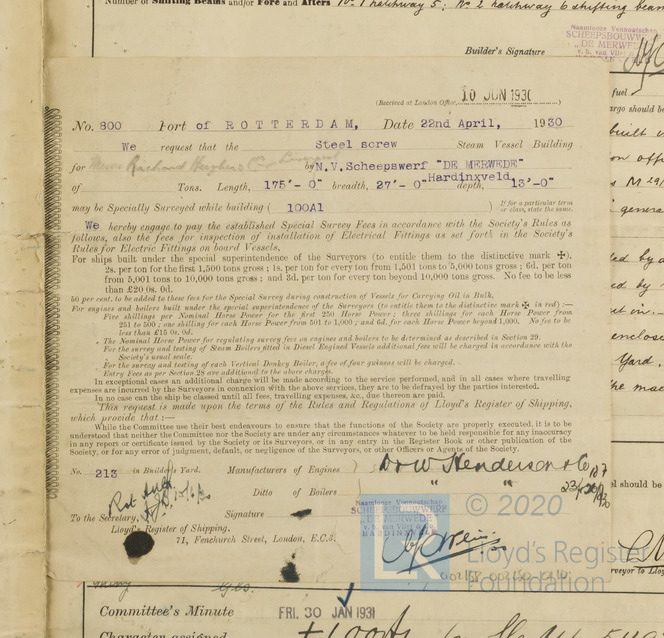 Number of Shifting Beams and/or Fore and Afters No. 1 hatchway 5; No. 2 hatchway 6 shifting beams
Builder's Signature
Naamlooze Vennootschap
SCHEEPSBOUWWERF
„DE MERWEDE"
(Received at London Office, 10 JUN 1930)
No. 800 Port of ROTTERDAM, Date 22nd April, 1930
We request that the Steel screw Steam Vessel Building
for Messrs Richard Hughes & Co Liverpool by N.V. Scheepswerf "DE MERWEDE"
Hardinxveld,
of Tons. Length, 175'- 0" breadth, 27'- 0" depth, 13'-0"
may be Specially Surveyed while building ( 100A1 ) If for a particular term or class, state the same.
We hereby engage to pay the established Special Survey Fees in accordance with the Society's Rules as
follows, also the fees for inspection of installation of Electrical Fittings as set forth in the Society's
Rules for Electric Fittings on board Vessels.
For ships built under the special superintendence of the Surveyors (to entitle them to the distinctive mark ✠),
2s. per ton for the first 1,500 tons gross; 1s. per ton for every ton from 1,501 to 5,000 tons gross; 6d. per ton
from 5,001 to 10,000 tons gross; and 3d. per ton for every ton beyond 10,000 tons gross. No fee to be less
than £20 0s. 0d.
50 per cent. to be added to these fees for the Special Survey during construction of Vessels for Carrying Oil in Bulk.
For engines and boilers built under the special superintendence of the Surveyors (to entitle them to the distinctive mark ✠ in red) :—
Five shillings per Nominal Horse Power for the first 250 Horse Power; three shillings for each Horse Power from
251 to 500; one shilling for each Horse Power from 501 to 1,000; and 6d. for each Horse Power beyond 1,000. No fee to be
less than £15 0s. 0d.
The Nominal Horse Power for regulating survey fees on engines and boilers to be determined as described in Section 29.
For the survey and testing of Steam Boilers fitted in Diesel Engined Vessels additional fees will be charged in accordance with the
Society's usual scale.
For the survey and testing of each Vertical Donkey Boiler, a fee of four guineas will be charged.
Entry Fees as per Section 28 are additional to the above charges.
In exceptional cases an additional charge will be made according to the service performed, and in all cases where travelling
expenses are incurred by the Surveyors in connexion with the above services, they are to be defrayed by the parties interested.
In no case can the ship be classed until all fees, travelling expenses, &c., due thereon are paid.
This request is made upon the terms of the Rules and Regulations of Lloyd's Register of Shipping,
which provide that :—
While the Committee use their best endeavours to ensure that the functions of the Society are properly executed, it is to be
understood that neither the Committee nor the Society are under any circumstances whatever to be held responsible for any inaccuracy
in any report or certificate issued by the Society or its Surveyors, or in any entry in the Register Book or other publication of the
Society, or for any error of judgment, default, or negligence of the Surveyors, or other Officers or Agents of the Society.
No. 213 in Builder's Yard. Manufacturers of Engines D & W Henderson & Co
Ditto of Boilers " "
Signature
Naamlooze Vennootschap
SCHEEPSBOUWWERF
„DE MERWEDE"
HARDINXVELD
To the Secretary,
Lloyd's Register of Shipping,
71, Fenchurch Street, London, E.C.3.
© 2020
Lloyd's Register
Foundation
Committee's Minute FRI. 30 JAN 1931
Character assigned +100A1
fuel
Yard.